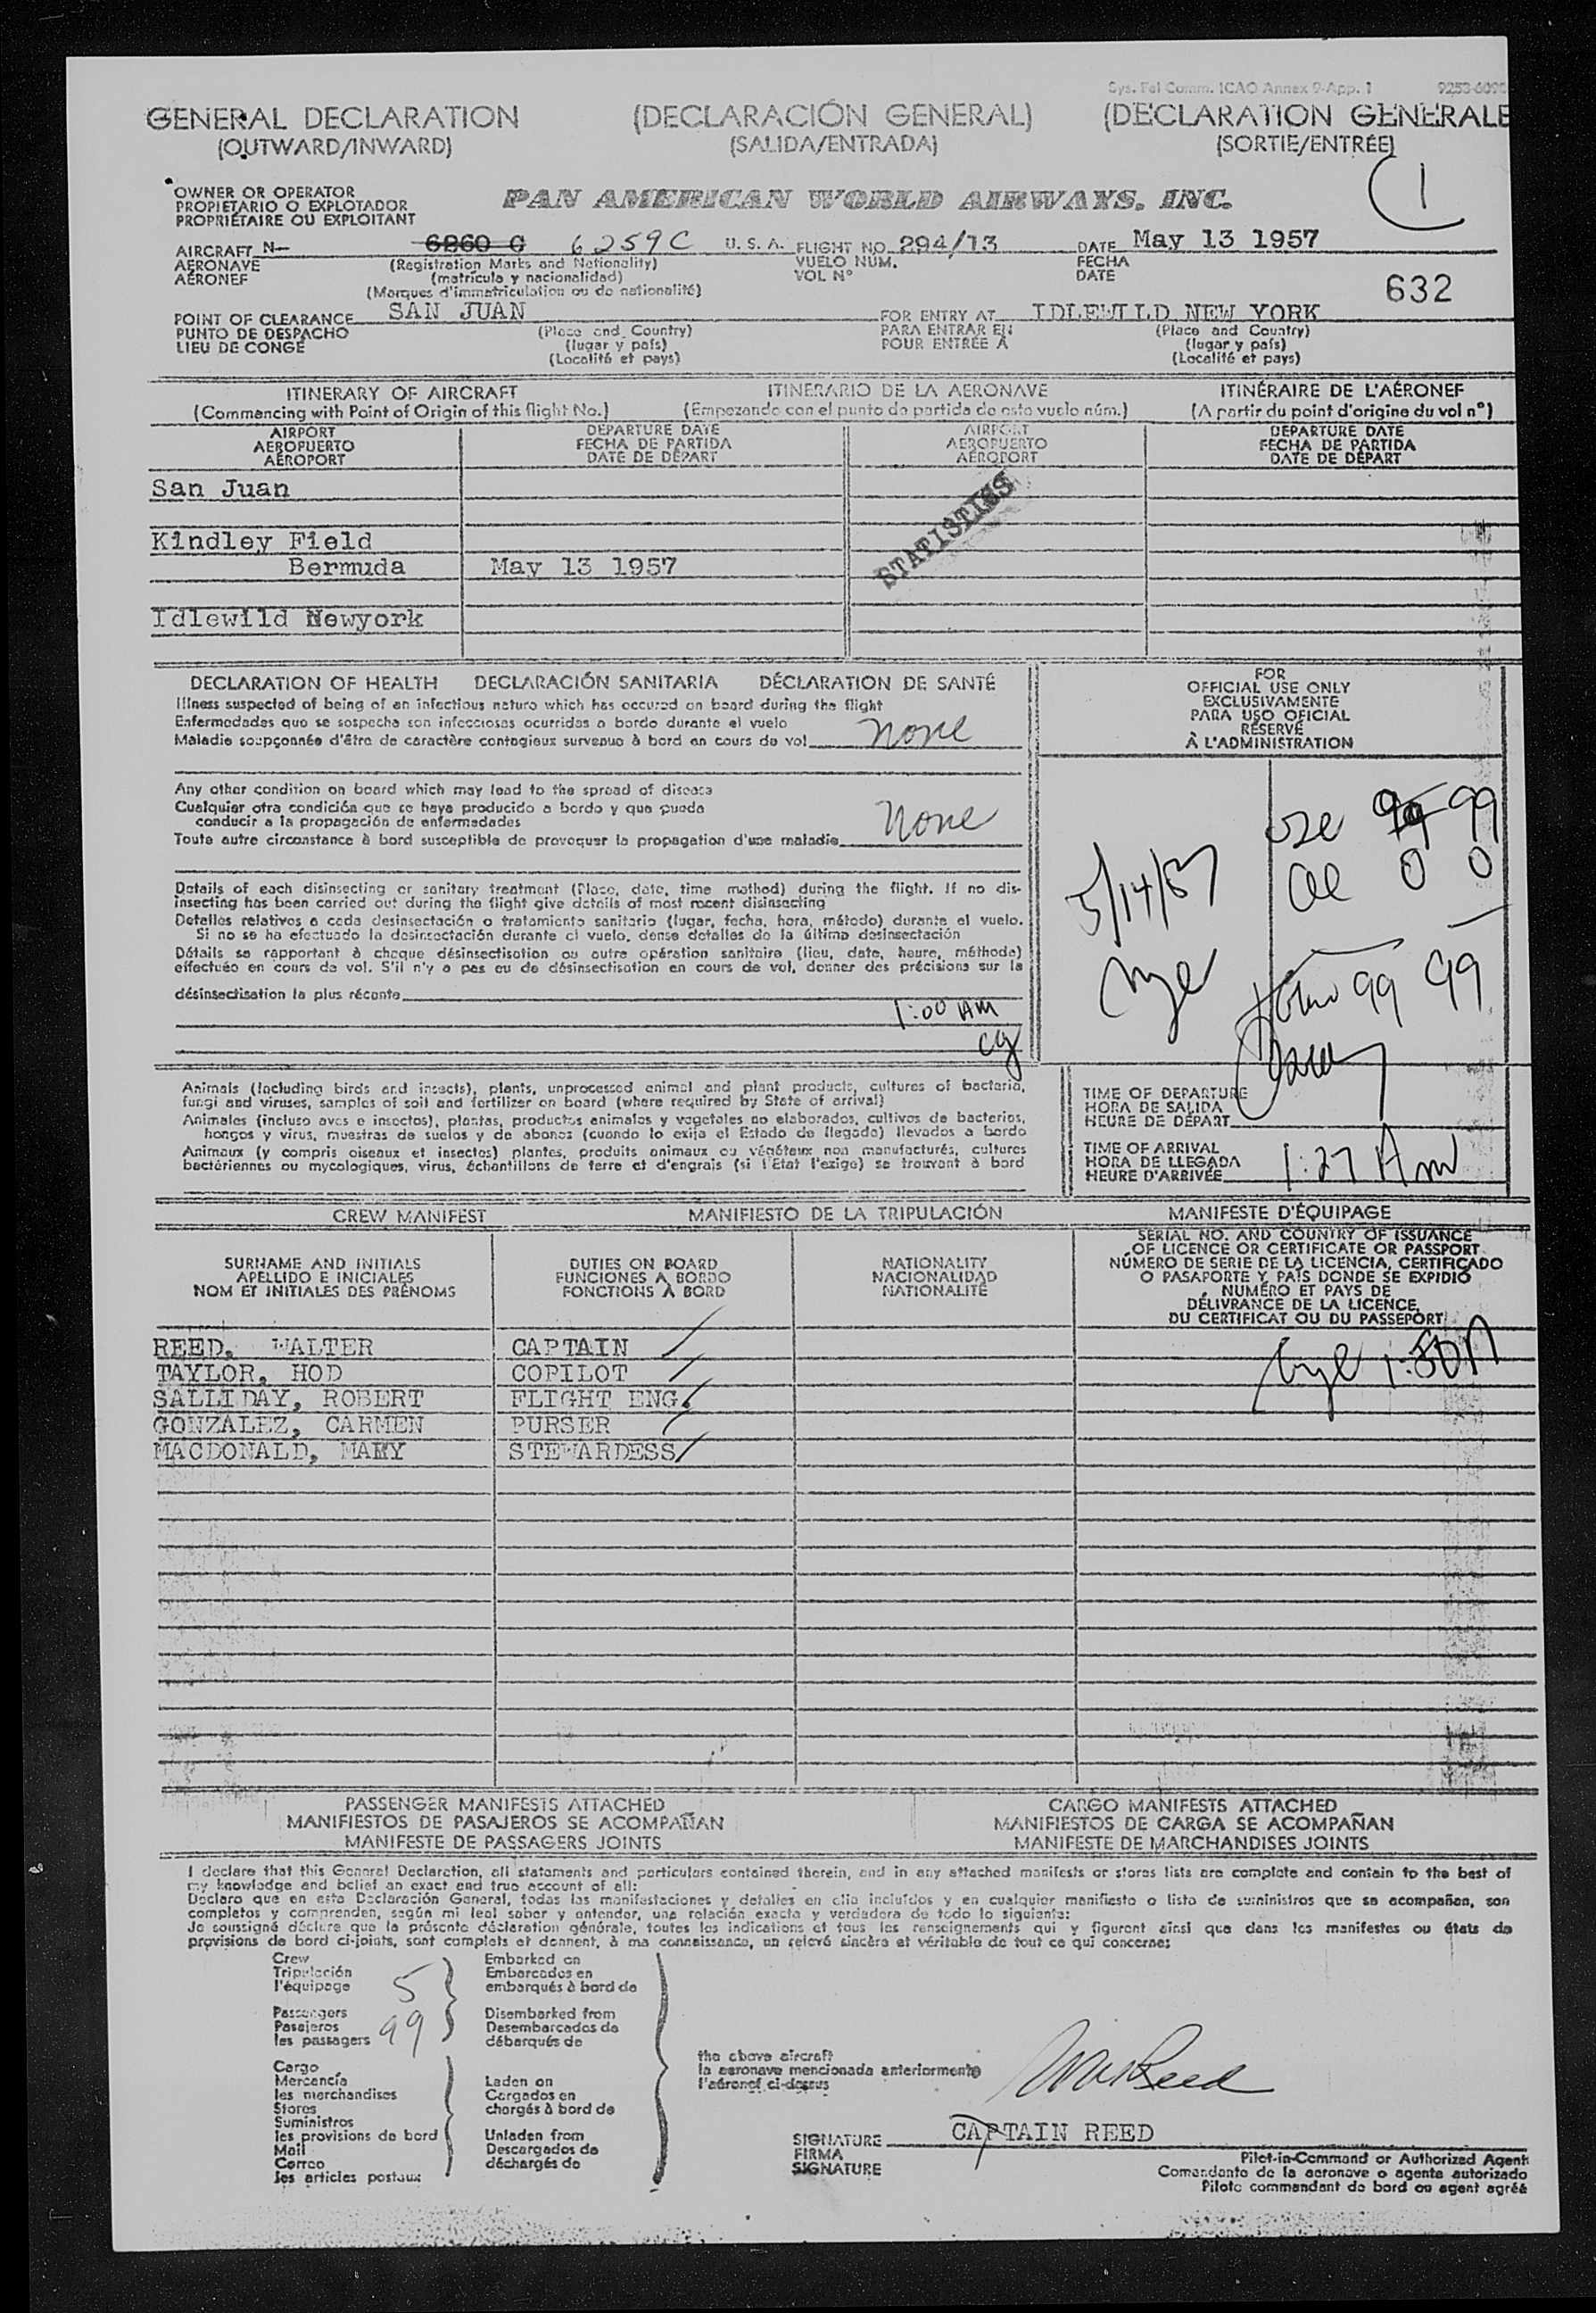 Sys. Fal Comm. ICAO Annex 9-App. 1
GENERAL DECLARATION (DECLARACIÓN GENERAL) (DECLARATION GENERALE
(OUTWARD/INWARD) (SALIDA/ENTRADA) (SORTIE/ENTRÉE)
1
OWNER OR OPERATOR
PROPIETARIO O EXPLOTADOR
PROPRIÉTAIRE OU EXPLOITANT
PAN AMERICAN WORLD AIRWAYS, INC.
AIRCRAFT N- 6260 C 6259C U. S. A. FLIGHT NO. 294/13 DATE May 13 1957
AERONAVE (Registration Marks and Nationality) VUELO NUM. FECHA
AÉRONEF (matrícula y nacionalidad) VOL N° DATE
(Marques d'immatriculation ou de nationalité)
632
POINT OF CLEARANCE SAN JUAN FOR ENTRY AT IDLEWILD NEW YORK
PUNTO DE DESPACHO (Place and Country) PARA ENTRAR EN (Place and Country)
LIEU DE CONGÉ (lugar y país) POUR ENTRÉE À (lugar y país)
(Localité et pays) (Localité et pays)
ITINERARY OF AIRCRAFT ITINERARIO DE LA AERONAVE ITINÉRAIRE DE L'AÉRONEF
(Commencing with Point of Origin of this flight No.) (Empezando con el punto de partida de este vuelo núm.) (A partir du point d'origine du vol n°)
AIRPORT DEPARTURE DATE AIRPORT DEPARTURE DATE
AEROPUERTO FECHA DE PARTIDA AEROPUERTO FECHA DE PARTIDA
AÉROPORT DATE DE DÉPART AÉROPORT DATE DE DÉPART
San Juan
STATISTICS
Kindley Field
Bermuda May 13 1957
Idlewild Newyork
DECLARATION OF HEALTH DECLARACIÓN SANITARIA DÉCLARATION DE SANTÉ
Illness suspected of being of an infectious nature which has occured on board during the flight
Enfermedades que se sospecha son infecciosas ocurridas a bordo durante el vuelo
Maladie soupçonnée d'être de caractère contagieux survenue à bord en cours de vol none
Any other condition on board which may lead to the spread of disease
Cualquier otra condición que se haya producido a bordo y que pueda
conducir a la propagación de enfermedades
Toute autre circonstance à bord susceptible de provoquer la propagation d'une maladie none
Details of each disinsecting or sanitary treatment (Place, date, time method) during the flight. If no dis-
insecting has been carried out during the flight give details of most recent disinsecting
Detalles relativos a cada desinsectación o tratamiento sanitario (lugar, fecha, hora, método) durante el vuelo.
Si no se ha efectuado la desinsectación durante el vuelo, dense detalles de la última desinsectación
Détails se rapportant à chaque désinsectisation ou autre opération sanitaire (lieu, date, heure, méthode)
effectuée en cours de vol. S'il n'y a pas eu de désinsectisation en cours de vol, donner des précisions sur la
désinsectisation la plus récente
1:00 AM
cg
FOR
OFFICIAL USE ONLY
EXCLUSIVAMENTE
PARA USO OFICIAL
RÉSERVÉ
À L'ADMINISTRATION
99 99
0 0
5/14/57
99 99
Animals (Including birds and insects), plants, unprocessed animal and plant products, cultures of bacteria,
fungi and viruses, samples of soil and fertilizer on board (where required by State of arrival)
Animales (incluso aves e insectos), plantas, productos animales y vegetales no elaborados, cultivos de bacterias,
hongos y virus, muestras de suelos y de abonos (cuando lo exija el Estado de llegada) llevados a bordo
Animaux (y compris oiseaux et insectes) plantes, produits animaux ou végétaux non manufacturés, cultures
bactériennes ou mycologiques, virus, échantillons de terre et d'engrais (si l'Etat l'exige) se trouvant à bord
TIME OF DEPARTURE
HORA DE SALIDA
HEURE DE DÉPART
TIME OF ARRIVAL
HORA DE LLEGADA
HEURE D'ARRIVÉE 1:27 Am
CREW MANIFEST MANIFIESTO DE LA TRIPULACIÓN MANIFESTE D'ÉQUIPAGE
SURNAME AND INITIALS
APELLIDO E INICIALES
NOM ET INITIALES DES PRÉNOMS
DUTIES ON BOARD
FUNCIONES A BORDO
FONCTIONS À BORD
NATIONALITY
NACIONALIDAD
NATIONALITÉ
SERIAL NO. AND COUNTRY OF ISSUANCE
OF LICENCE OR CERTIFICATE OR PASSPORT
NÚMERO DE SERIE DE LA LICENCIA, CERTIFICADO
O PASAPORTE Y PAÍS DONDE SE EXPIDIÓ
NUMÉRO ET PAYS DE
DÉLIVRANCE DE LA LICENCE,
DU CERTIFICAT OU DU PASSEPORT
REED, WALTER CAPTAIN
TAYLOR, HOD COPILOT
SALLIDAY, ROBERT FLIGHT ENG.
GONZALEZ, CARMEN PURSER
MACDONALD, MARY STEWARDESS
PASSENGER MANIFESTS ATTACHED CARGO MANIFESTS ATTACHED
MANIFIESTOS DE PASAJEROS SE ACOMPAÑAN MANIFIESTOS DE CARGA SE ACOMPAÑAN
MANIFESTE DE PASSAGERS JOINTS MANIFESTE DE MARCHANDISES JOINTS
I declare that this General Declaration, all statements and particulars contained therein, and in any attached manifests or stores lists are complete and contain to the best of
my knowledge and belief an exact and true account of all:
Declaro que en esta Declaración General, todas las manifestaciones y detalles en ella incluídos y en cualquier manifiesto o lista de suministros que se acompañan, son
completos y comprenden, según mi leal saber y entender, una relación exacta y verdadera de todo lo siguiente:
Je soussigné déclare que la présente déclaration générale, toutes les indications et tous les renseignements qui y figurent ainsi que dans les manifestes ou états de
provisions de bord ci-joints, sont complets et donnent, à ma connaissance, un relevé sincère et véritable de tout ce qui concerne:
Crew Embarked on
Tripulación Embarcados en
l'équipage 5 embarqués à bord de
Passengers Disembarked from
Pasajeros Desembarcados de
les passagers 99 débarqués de
Cargo
Mercancía Laden on
les merchandises Cargados en
Stores chargés à bord de
Suministros
les provisions de bord Unladen from
Mail Descargados de
Correo déchargés de
les articles postaux
the above aircraft
la aeronave mencionada anteriormente
l'aéronef ci-dessus
SIGNATURE CAPTAIN REED
FIRMA
SIGNATURE
Pilot-in-Command or Authorized Agent
Comandante de la aeronave o agente autorizado
Pilote commandant de bord ou agent agréé